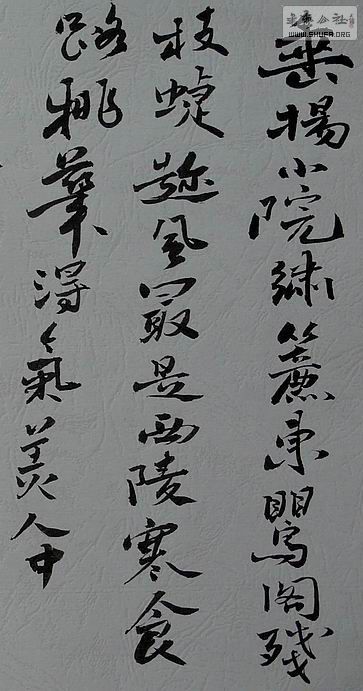 垂楊小院繡簾東鸎閣殘
枝蜨趂風冣是西陵寒食
路桃華得氣美人中
WWW.SHUFA.ORG